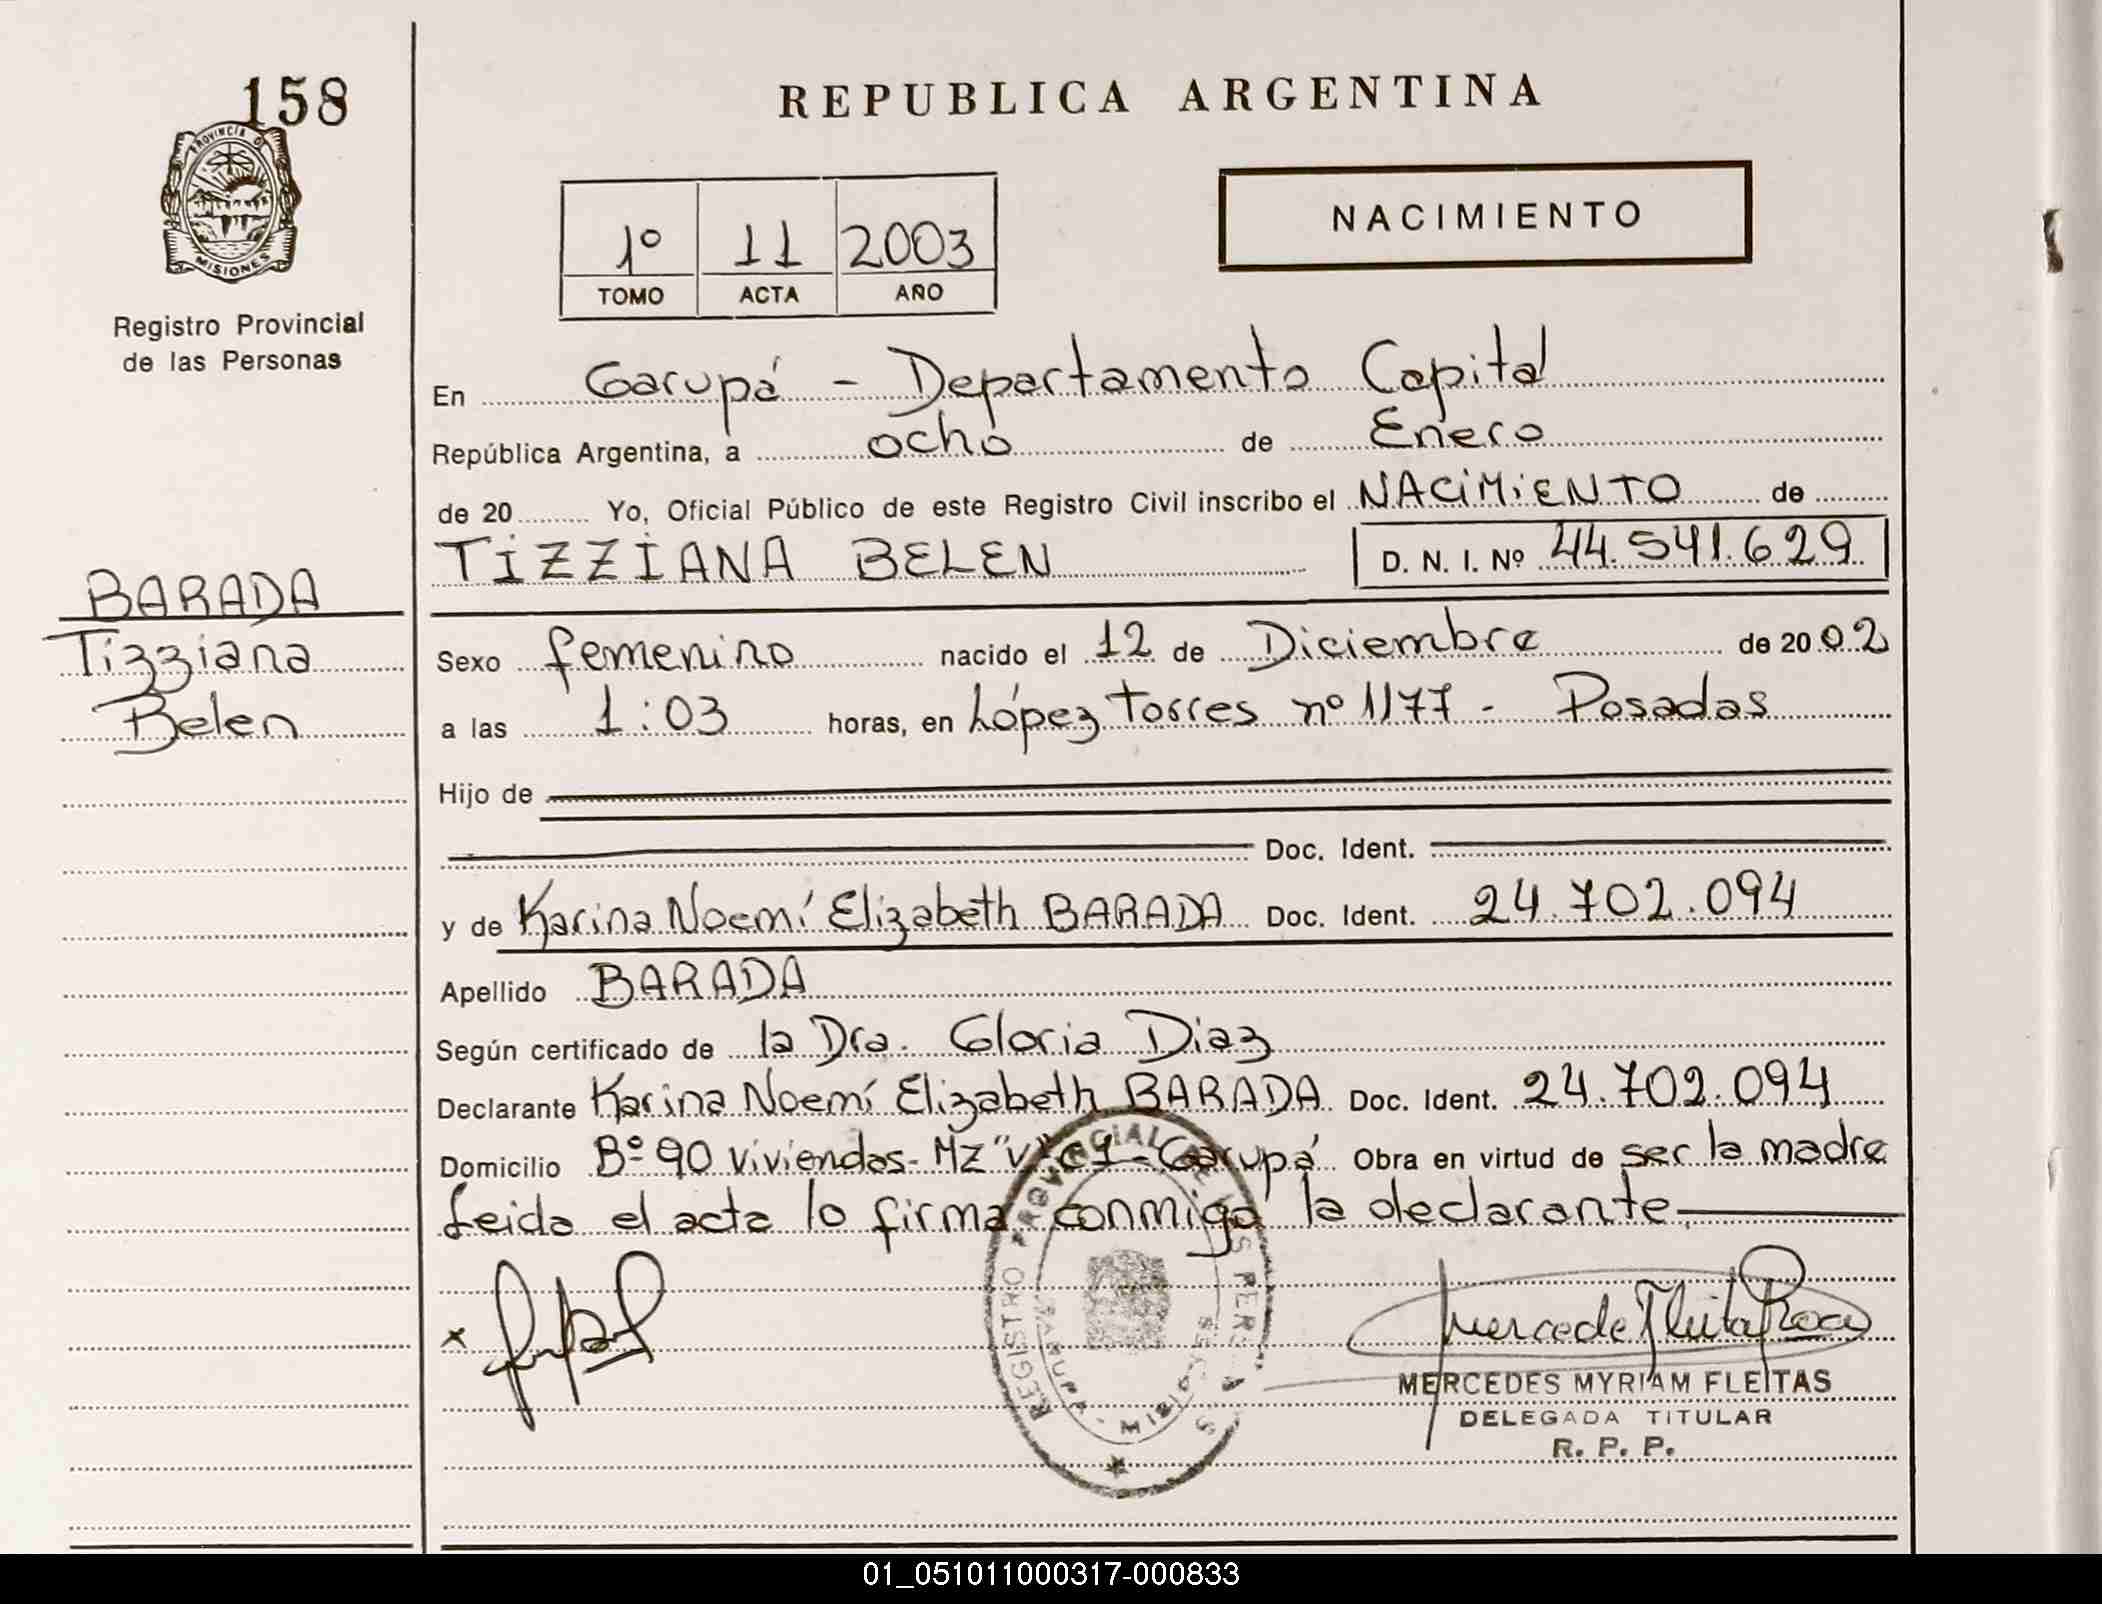 158
PROVINCIA D
MISIONES
Registro Provincial
de las Personas
BARADA
Tizziana
Belen
REPUBLICA ARGENTINA
1º 11 2003
TOMO ACTA AÑO
NACIMIENTO
En Garupá - Departamento Capital
República Argentina, a ocho de Enero
de 20 Yo, Oficial Público de este Registro Civil inscribo el NACIMIENTO de
TIZZIANA BELEN D. N. I. Nº 44.541.629
Sexo femenino nacido el 12 de Diciembre de 2002
a las 1:03 horas, en López Torres nº 1177 - Posadas
Hijo de
Doc. Ident.
y de Karina Noemí Elizabeth BARADA Doc. Ident. 24.702.094
Apellido BARADA
Según certificado de la Dra. Gloria Diaz
Declarante Karina Noemí Elizabeth BARADA Doc. Ident. 24.702.094
Domicilio Bº 90 viviendas - Mz "V" C1 - Garupá Obra en virtud de ser la madre
Leida el acta lo firma conmigo la declarante.
x
REGISTRO PROVINCIAL DE LAS PERS
GARUPA - MISIONES
MERCEDES MYRIAM FLEITAS
DELEGADA TITULAR
R. P. P.
01_051011000317-000833